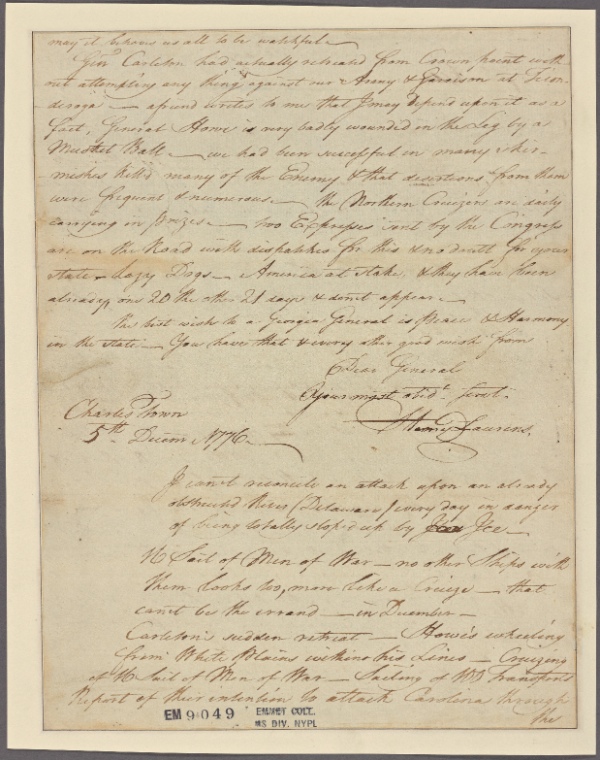 may it behoves us all to be watchful.
Genl. Carleton had actually retreated from Crown point with
out attempting any thing against our Army & Garrison at Ticon-
deroga — a friend writes to me that I may depend upon it as a
fact, General Howe is very badly wounded in the Leg by a
Musket Ball — we had been successful in many skir-
mishes kill'd many of the Enemy & that desertions from them
were frequent & numerous — the Northern Cruizers are daily
carrying in prizes — two Expresses sent by the Congress
are on the Road with dispatches for this & no doubt for your
state — lazy Dogs — America at stake, & they have been
already one 20 the other 21 days & don't appear —
The best wish to a Georgia General is Peace & Harmony
in the state — You have that & every other good wish from
Dear General
Your most obedt. servt.
Henry Laurens.
Charles Town
5th Decem 1776.
I can't reconcile an attack upon an already
obstructed River (Delaware) every day in danger
of being totally stoped up by Ice —
16 Sail of Men of War — no other Ships with
them looks too, more like a Cruize — that
can't be the errand — in December —
Carleton's sudden retreat — Howe's wheeling
from White Plains within his Lines — Cruizing
of 16 Sail of Men of War — Sailing of 100 Transports
Report of their intention to attack Carolina through
the
EM 9049
EMMET COLL.
MS DIV. NYPL